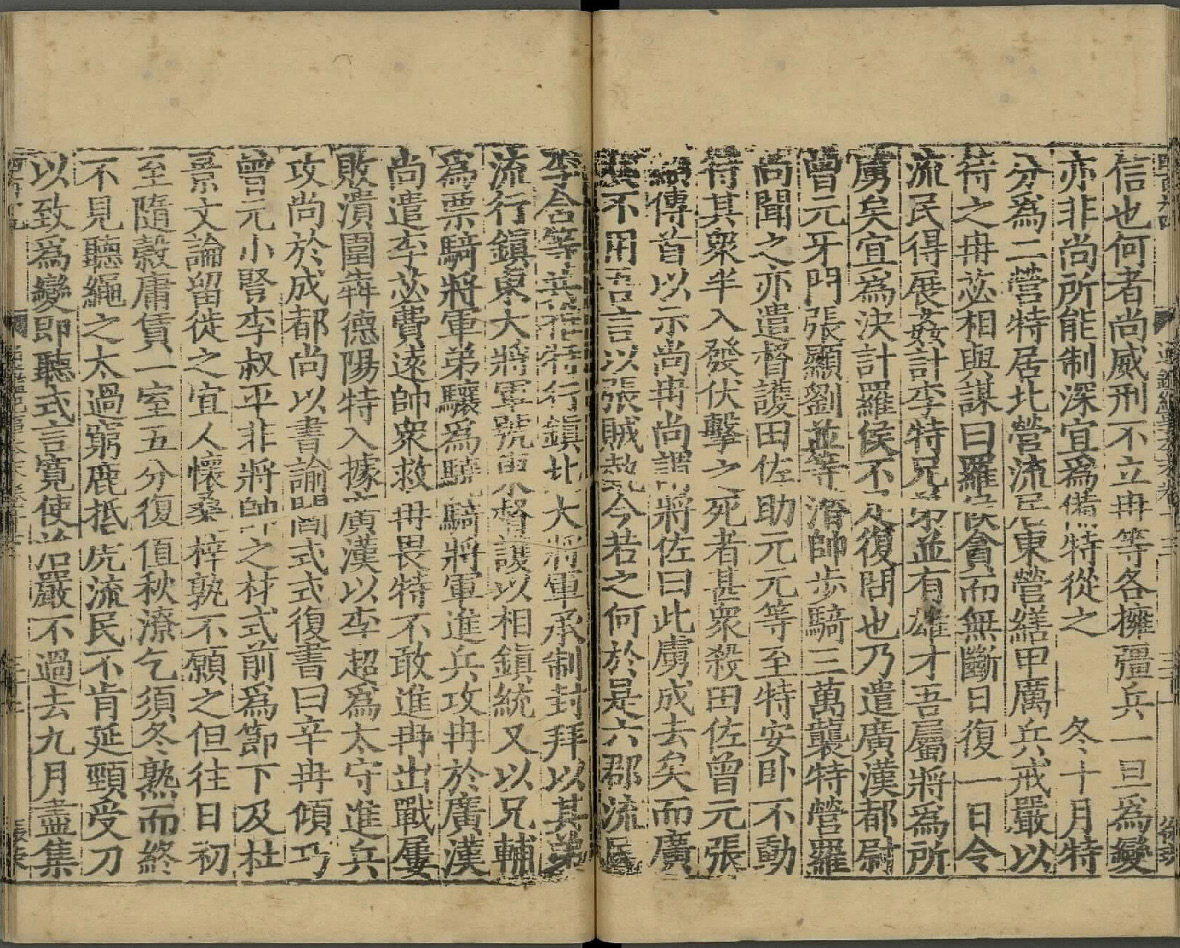 信也何者尚威刑不立冉等各擁彊兵一旦爲變
亦非尚所能制深宜爲備特從之 冬十月特
分爲二營特居北營流居東營繕甲厲兵戒嚴以
待之冉苾相與謀曰羅侯貪而無斷日復一日令
流民得展姦計李特兄弟並有雄才吾屬將爲所
虜矣宜爲決計羅侯不足復問也乃遣廣漢都尉
曾元牙門張顯劉並等潛帥步騎三萬襲特營羅
尚聞之亦遣督護田佐助元元等至特安臥不動
待其衆半入發伏擊之死者甚衆殺田佐曾元張
顯傳首以示尚冉尚謂將佐曰此虜成去矣而廣
漢不用吾言以張賊勢今若之何於是六郡流民
李含等共推特行鎮北大將軍承制封拜以其弟
流行鎮東大將軍號東督護以相鎮統又以兄輔
爲票騎將軍弟驤爲驍騎將軍進兵攻冉於廣漢
尚遣李苾費遠帥衆救冉畏特不敢進冉出戰屢
敗潰圍奔德陽特入據廣漢以李超爲太守進兵
攻尚於成都尚以書諭閻式式復書曰辛冉傾巧
曾元小豎李叔平非將帥之材式前爲節下及杜
景文論留徙之宜人懷桑梓孰不願之但往日初
至隨穀庸賃一室五分復值秋潦乞須冬熟而終
不見聽繩之太過窮鹿抵虎流民不肯延頸受刀
以致爲變即聽式言寬使治嚴不過去九月盡集